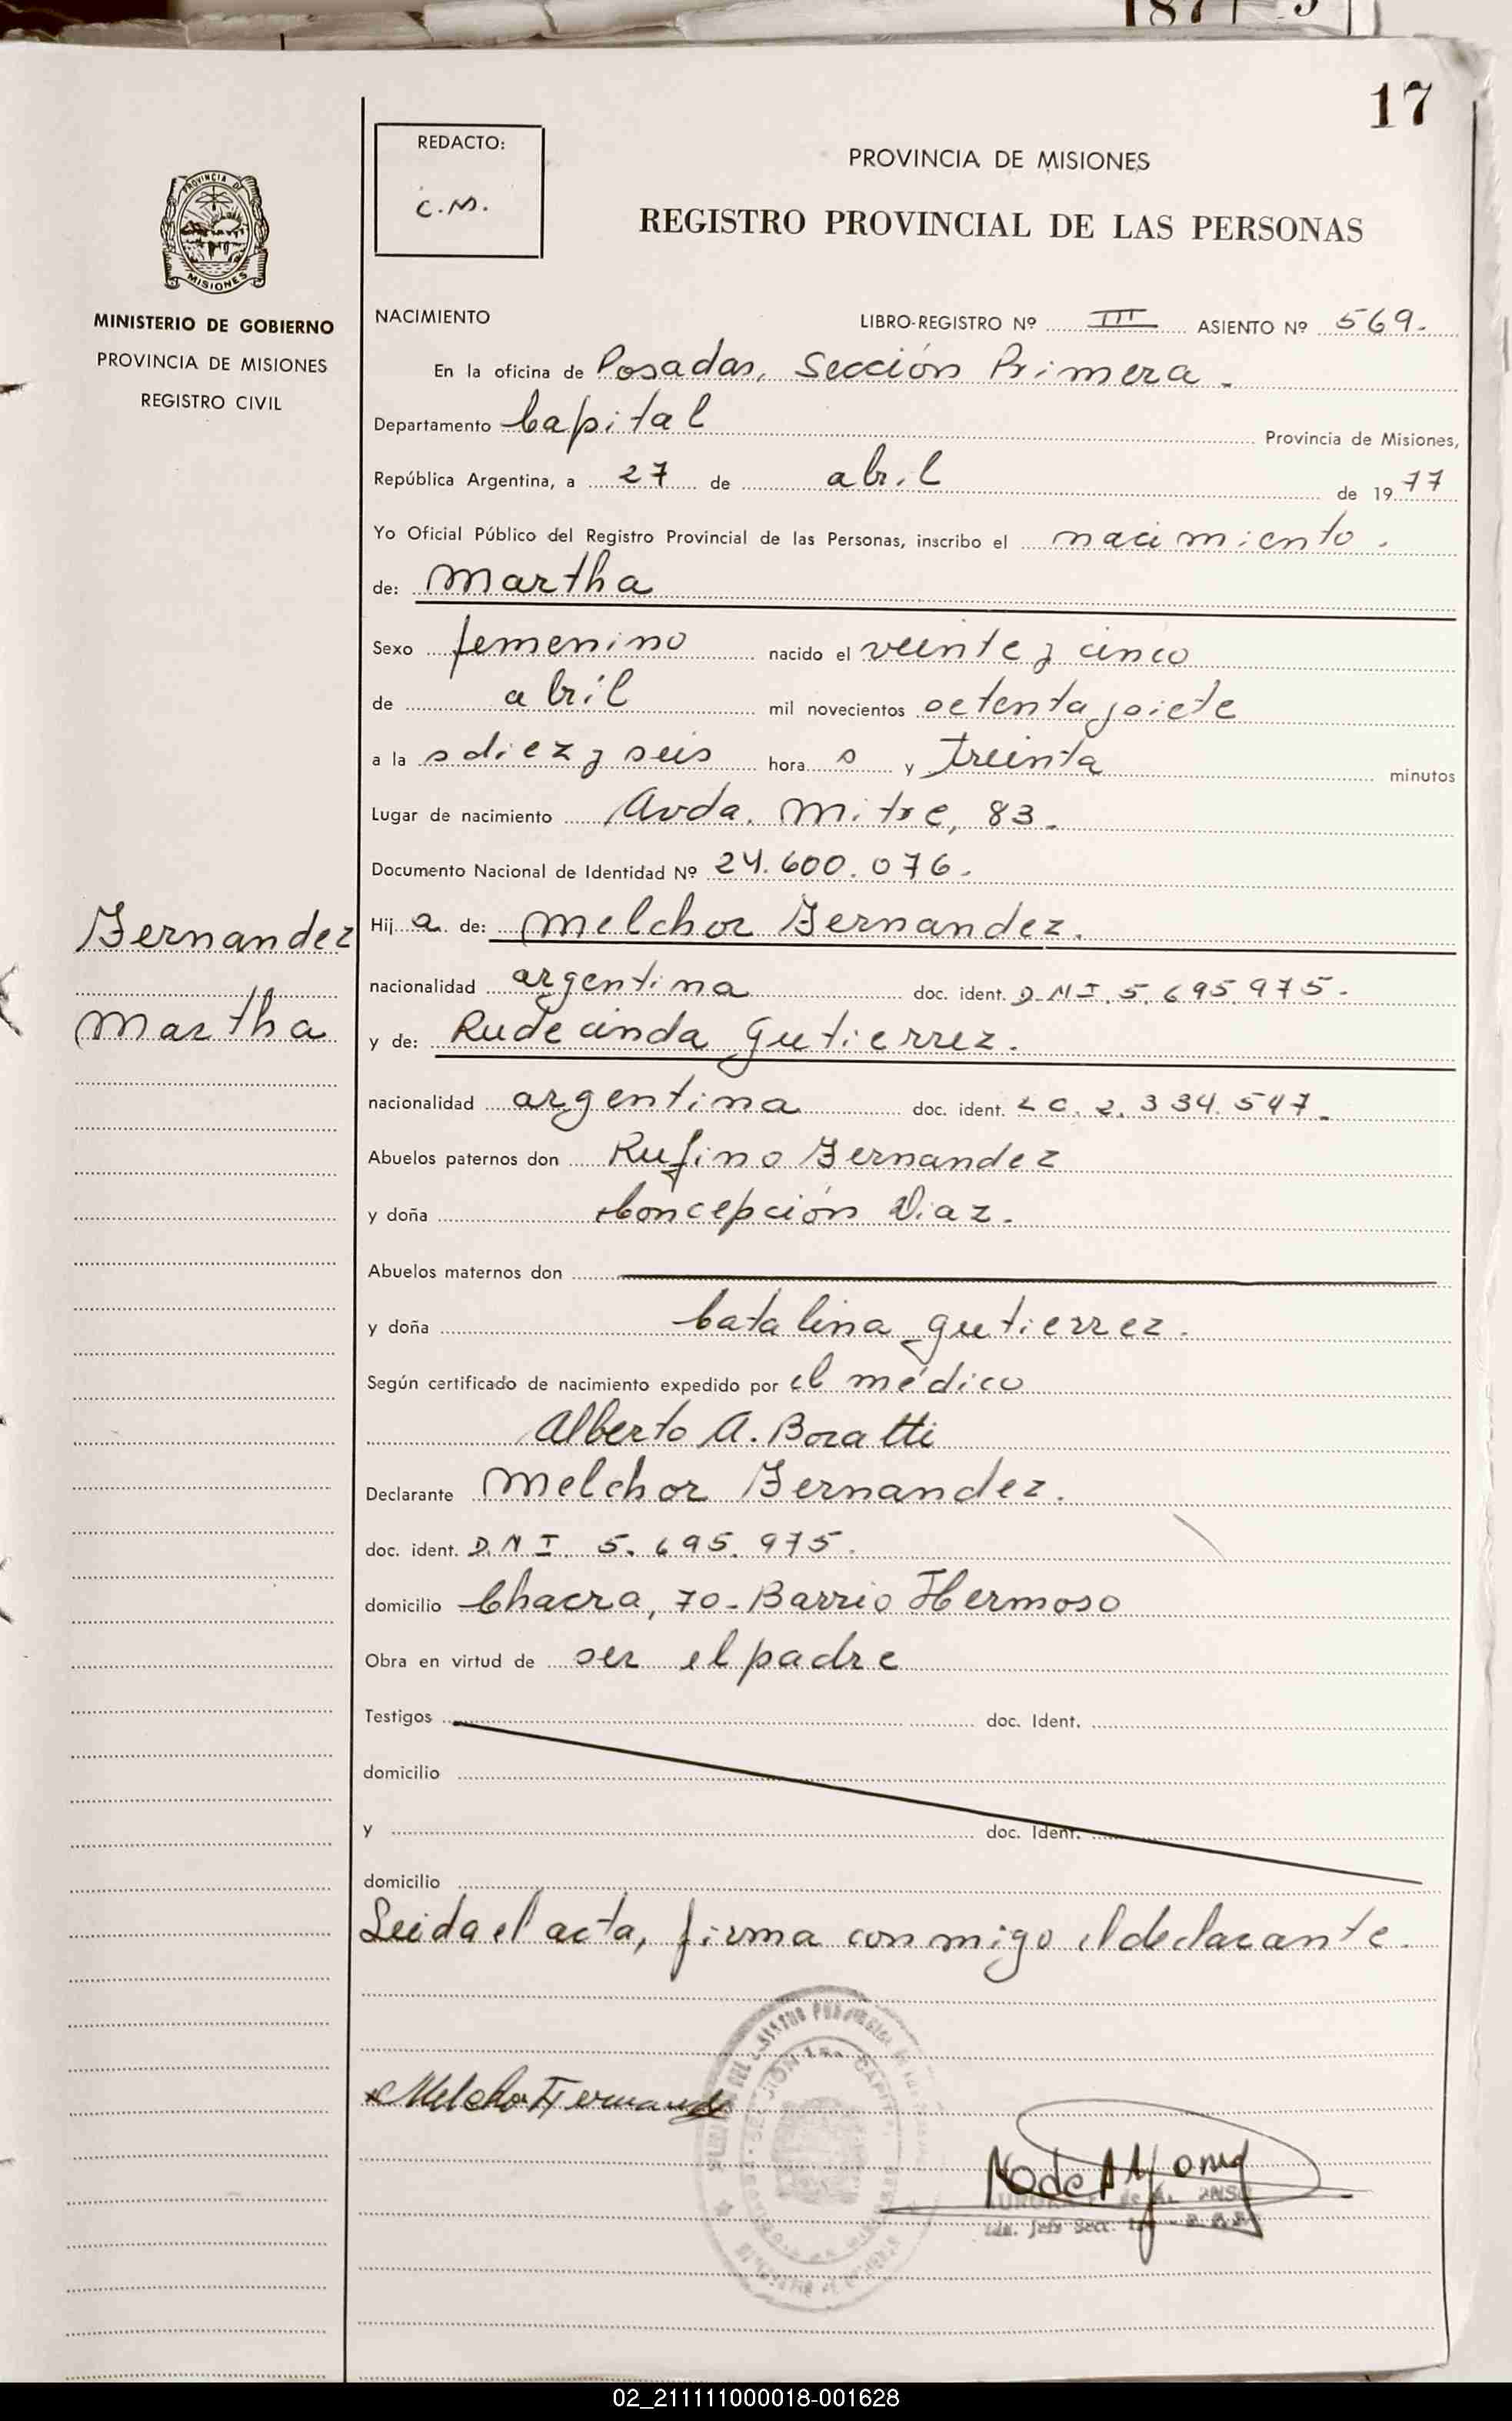 17
REDACTO:
C.M.
PROVINCIA DE MISIONES
REGISTRO PROVINCIAL DE LAS PERSONAS
PROVINCIA DE
MISIONES
MINISTERIO DE GOBIERNO
PROVINCIA DE MISIONES
REGISTRO CIVIL
NACIMIENTO LIBRO-REGISTRO Nº III ASIENTO Nº 569.
En la oficina de Posadas, Sección Primera.
Departamento Capital Provincia de Misiones,
República Argentina, a 27 de abril de 1977
Yo Oficial Público del Registro Provincial de las Personas, inscribo el nacimiento.
de: Martha
Sexo femenino nacido el veinte y cinco
de abril mil novecientos setenta y siete
a la s diez y seis hora s y treinta minutos
Lugar de nacimiento Avda. Mitre, 83.
Documento Nacional de Identidad Nº 24.600.076.
Fernandez
Martha
Hij a de: Melchor Fernandez.
nacionalidad argentina doc. ident. D.N.I. 5.695.975.
y de: Rudecinda Gutierrez.
nacionalidad argentina doc. ident. L C. 2.334.547.
Abuelos paternos don Rufino Fernandez
y doña Concepción Diaz.
Abuelos maternos don
y doña Catalina Gutierrez.
Según certificado de nacimiento expedido por el médico
Alberto A. Boratti
Declarante Melchor Fernandez.
doc. ident. D.N I. 5.695.975.
domicilio Chacra, 70-Barrio Hermoso
Obra en virtud de ser el padre
Testigos doc. Ident.
domicilio
y doc. Ident.
domicilio
Leida el acta, firma conmigo el declarante.
Melcho Fernande
02_211111000018-001628